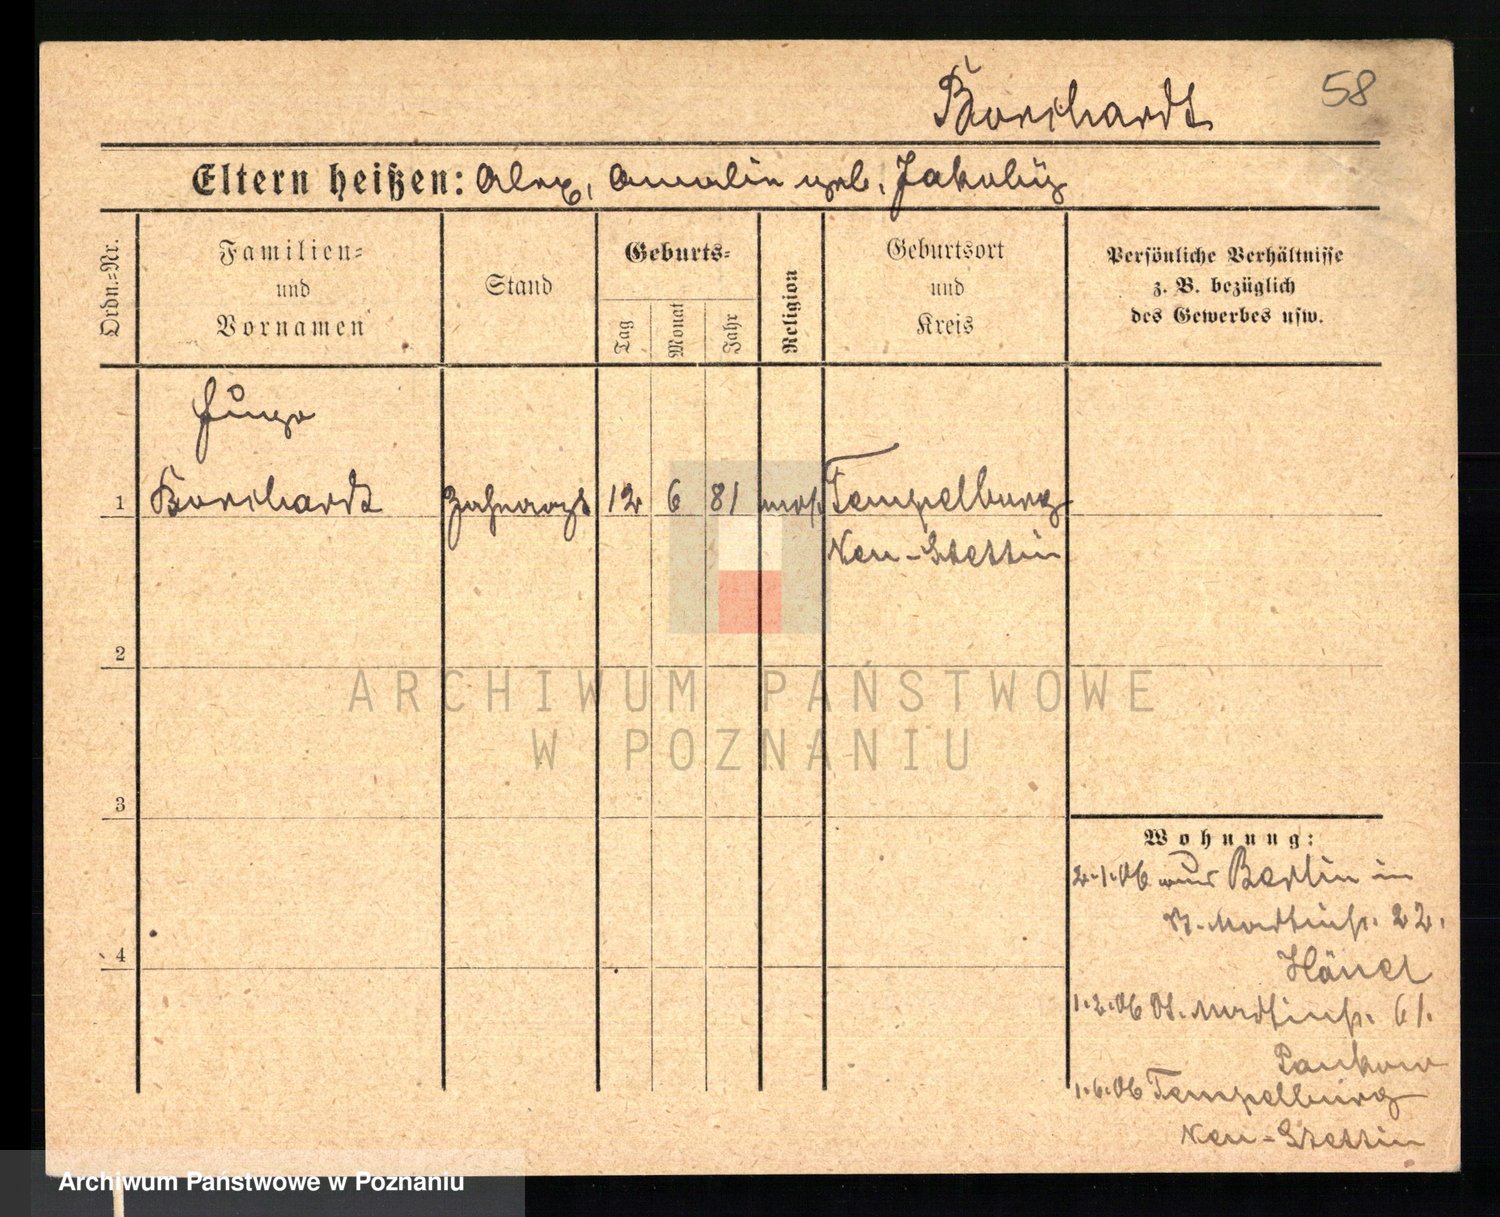 58
Borchardt
Eltern heißen: Alex, Amalie geb. Jakoby
Ordn.=Nr.
Familien=
und
Vornamen
Stand
Geburts=
Tag
Monat
Jahr
Religion
Geburtsort
und
Kreis
Persönliche Verhältnisse
z. B. bezüglich
des Gewerbes usw.
Hugo
1 Borchardt Zahnarzt 12 6 81 mos. Tempelburg
Neu-Stettin
2
3
4
Wohnung:
2.1.06 aus Berlin in
St. Martinstr. 22.
1.2.06 St. Martinstr. 61.
Pankow
1.6.06 Tempelburg
Neu-Stettin
ARCHIWUM PAŃSTWOWE
W POZNANIU
Archiwum Państwowe w Poznaniu